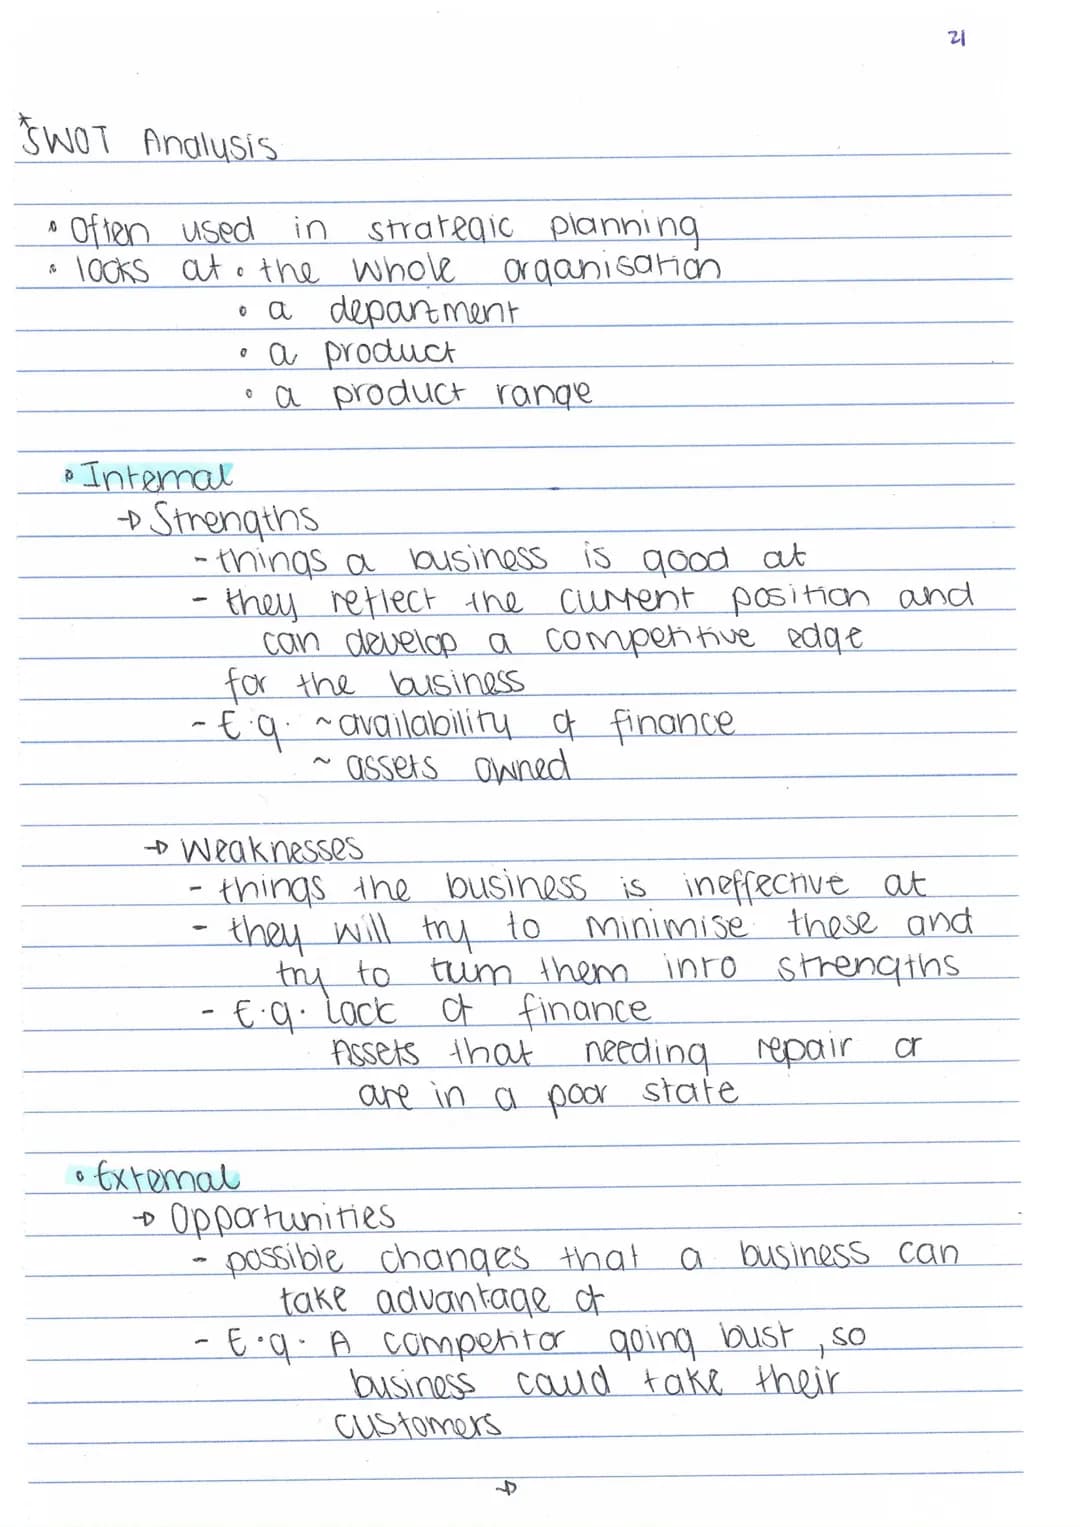 21
*SWOT Analysis
• Often used in strategic planning
• looks at • the whole organisation
• a department
• a product
• a product range
• Internal
→ Strengths
- things a business is good at
- they reflect the current position and
can develop a competitive edge
for the business
- E.g. ~ availability of finance
~ assets owned
→ Weaknesses
- things the business is ineffective at
- they will try to minimise these and
try to turn them into strengths
- E.g. Lack of finance
Assets that needing repair or
are in a poor state
• External
→ Opportunities
- possible changes that a business can
take advantage of
- E.g. A competitor going bust, so
business could take their
customers
→